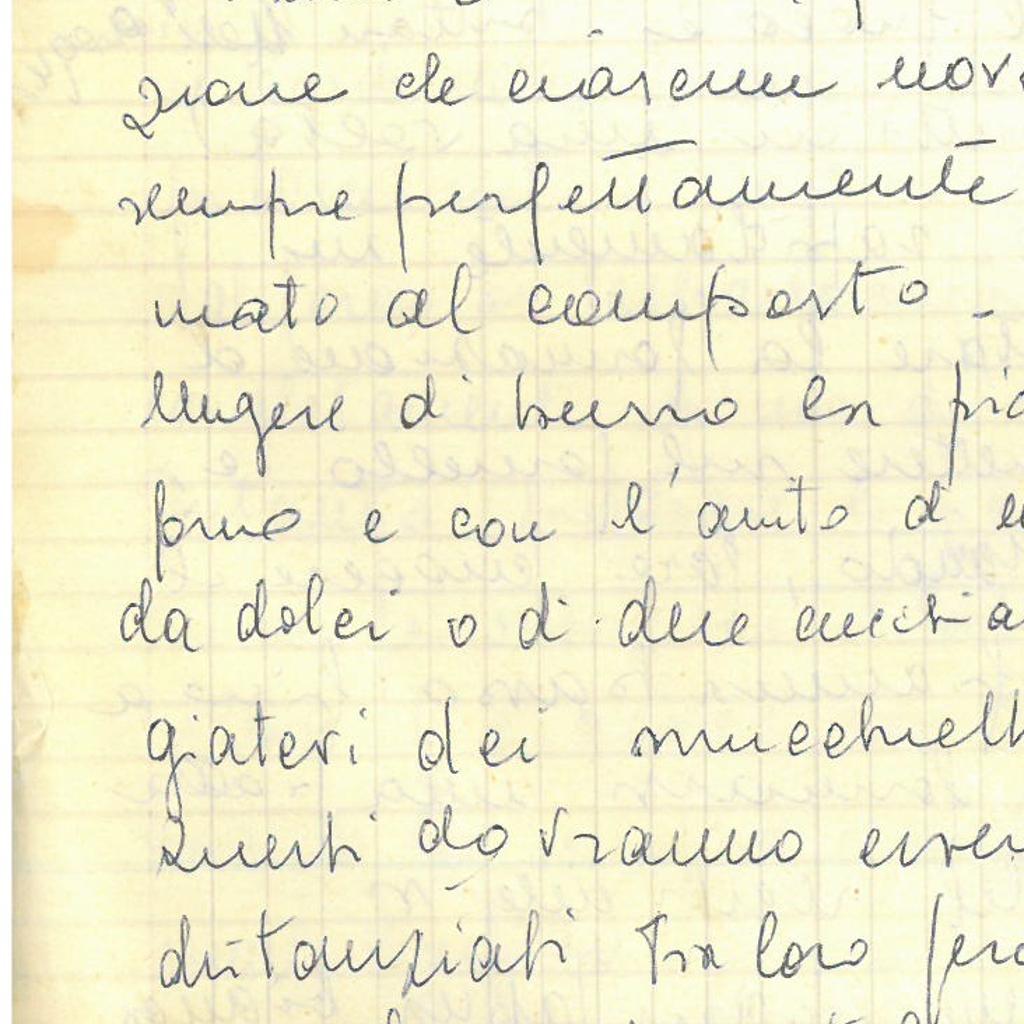 zione che ciascun uovo
sempre perfettamente
mato al composto -
Ungere di burro la
forno e con l'aiuto di
da dolci o di due cucchia
giatevi dei mucchietti
Questi dovranno essere
distanziati tra loro